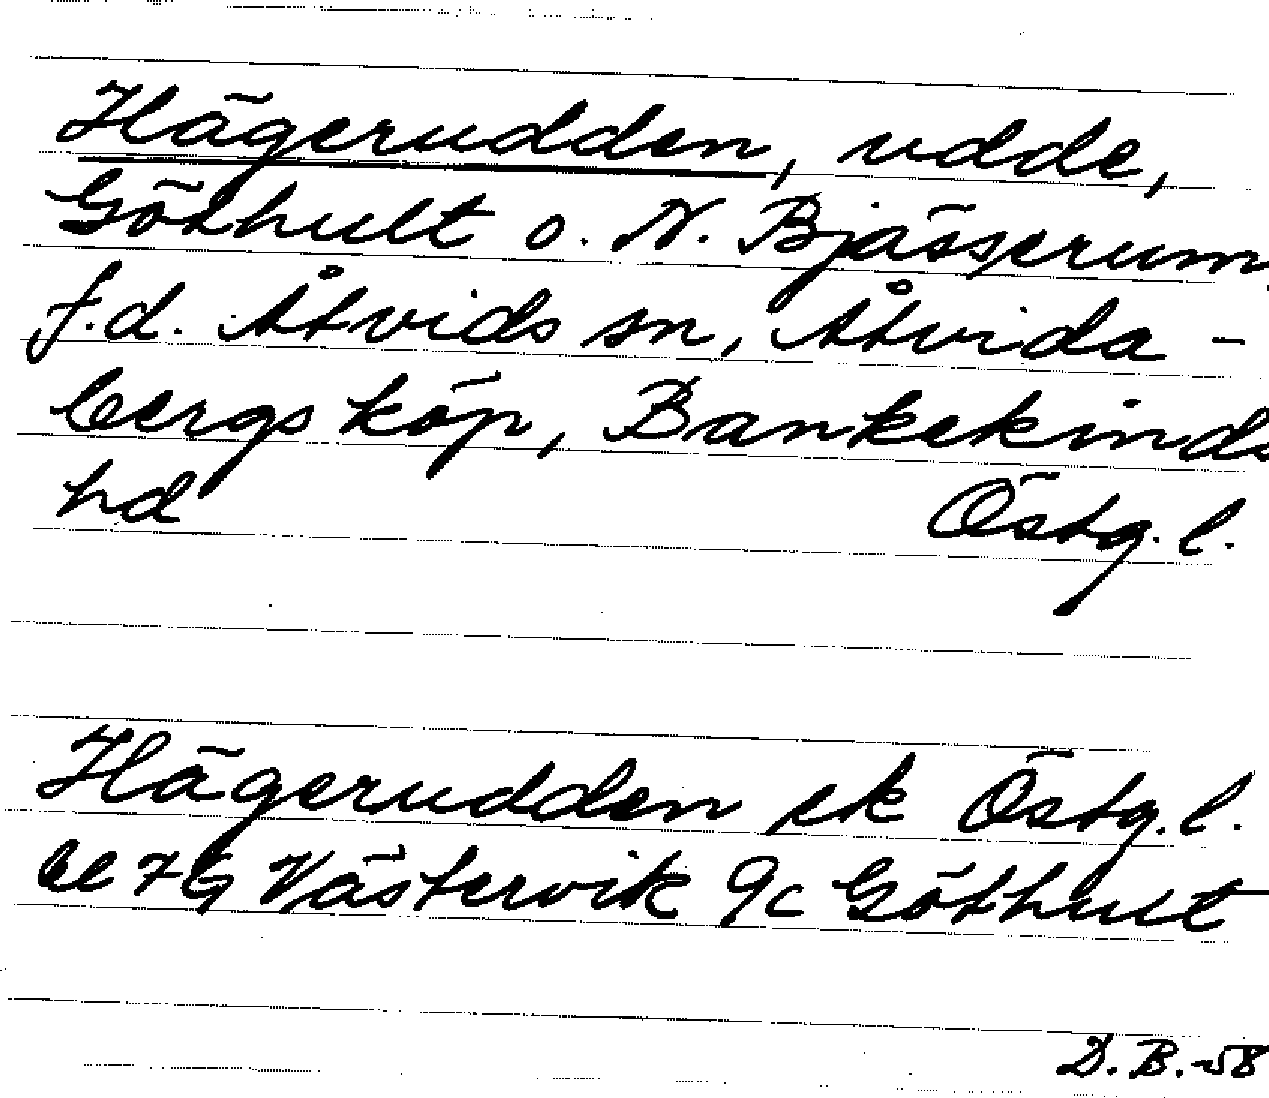 Hägerudden, udde,
Göthult o. N. Bjässerum,
f.d. Åtvids sn, Åtvida-
bergs köp, Bankekinds
hd Östg. l.
Hägerudden ek Östg. l.
bl 7G Västervik 9c Göthult
D. B. -58